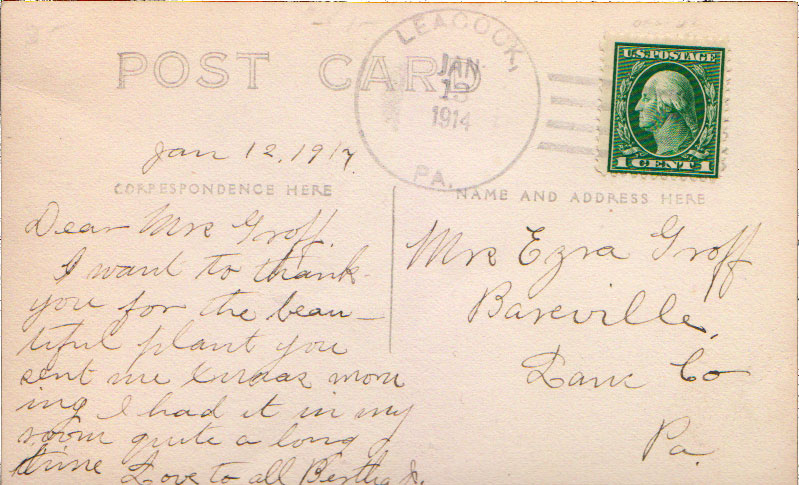 POST CARD
LEACOCK,
JAN
13
1914
PA.
U.S. POSTAGE
1 CENT 1
Jan 12, 1914
CORRESPONDENCE HERE
NAME AND ADDRESS HERE
Dear Mrs Groff.
I want to thank
you for the beau–
tiful plant you
sent me Xmas morn
ing I had it in my
room quite a long
time Love to all Bertha J.
Mrs Ezra Groff
Bareville,
Lanc Co
Pa.